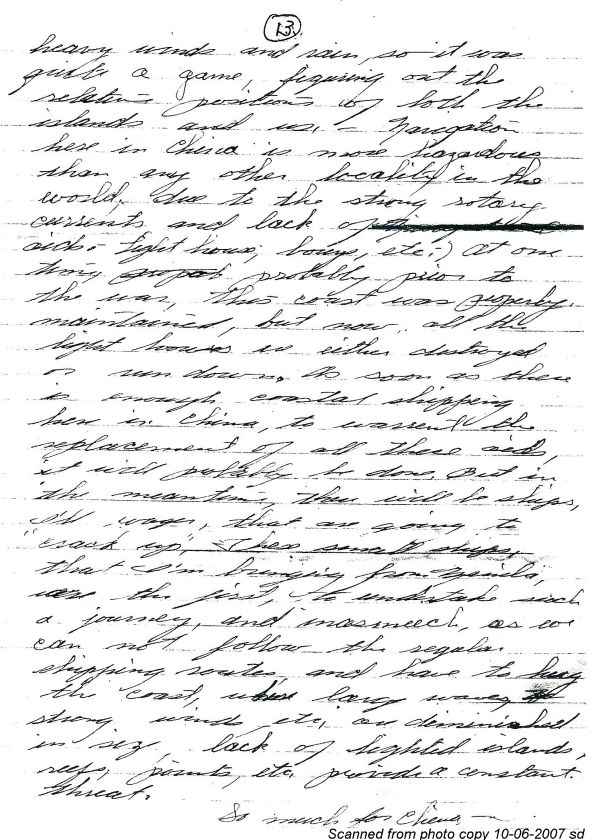 13.
heavy winds and rain, so it was
quite a game, figuring out the
relative positions of both the
islands and us. - Navigation
here in China is more hazardous
than any other locality in the
world, due to the strong rotary
currents and lack of
aids - light house, bouys, etc.) At one
time, probably prior to
the war, this coast was properly
maintained, but now, all the
light houses are either destroyed
or run down. As soon as there
is enough coastal shipping
here in China, to warrent the
replacement of all these aids,
it will probably be done. But in
the meantime, there will be ships,
I'll wager, that are going to
"crack up". These small ships,
that I'm bringing from Manila,
were the first, to undertake such
a journey, and inasmuch, as we
can not follow the regular
shipping routes, and have to hug
the coast, where large waves,
strong winds etc, are diminished
in size, lack of lighted islands,
reefs, points, etc, provide a constant
threat.
So much for China -
Scanned from photo copy 10-06-2007 sd